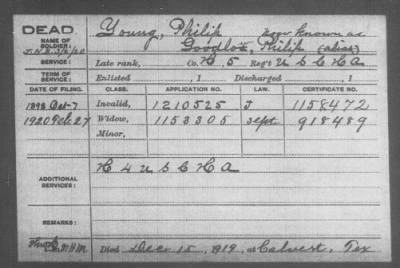 DEAD Young, Philip now known as
NAME OF SOLDIER: Goodloe, Philip (alias)
SERVICE: Late rank, Co. H, 5 Reg't U S C H A
TERM OF SERVICE: Enlisted , 1 Discharged , 1
DATE OF FILING. CLASS. APPLICATION NO. LAW. CERTIFICATE NO.
1898 Oct-7 Invalid, 1210525 J 1158472
1920 Feb 27 Widow, 1153305 Sept 918489
Minor,
ADDITIONAL SERVICES: H 4 U S C H A
REMARKS:
Died Dec 15, 1919, at Calvert, Tex